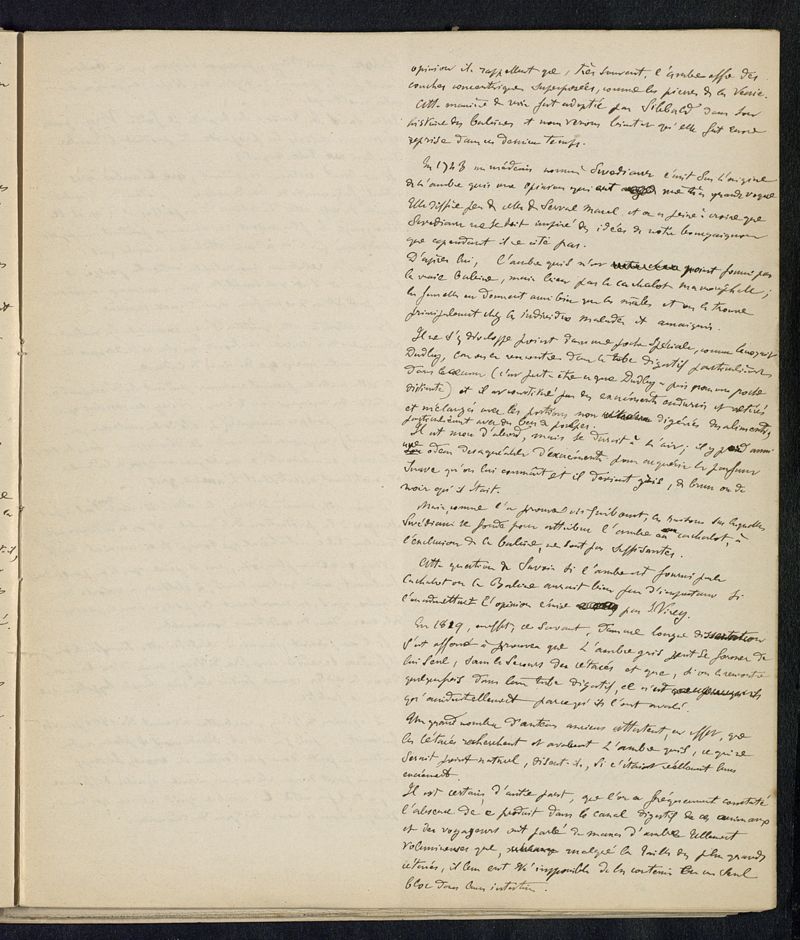 opinion ils rappellent que, très souvent, l'ambre offre des
couches concentriques superposées, comme les pierres de la vessie.
Cette manière de voir fut adoptée par Sibbald dans son
histoire des baleines et nous venons bientôt qu'elle fut encore
reprise dans ces derniers temps.
En 1783 un médecin nommé Swediaur émit sur l'origine
de l'ambre gris une opinion qui eut une très grande vogue
Elle diffère peu de celle de Servat Marel et on a peine à croire que
Swediaur ne se soit inspiré des idées de notre compagnon
que cependant il ne cite pas.
D'après lui, l'ambre gris n'est point fourni par
la vraie baleine, mais bien par le cachalot macrocéphale ;
les femelles en donnent aussi bien que les mâles et on le trouve
principalement chez les individus malades et amaigris.
Il ne s'y développe point dans une poche spéciale, comme le croyait
Dudley, car on en rencontre dans le tube digestif particulièrement
dans le caecum (c'est peut-être ce que Dudley a pris pour une poche
distincte) et il est constitué par des excréments endurcis et altérés
et mélangés avec les portions non digérées des aliments,
particulièrement avec des becs de poulpes.
Il est mou d'abord, mais se durcit à l'air ; il y perd aussi
une odeur désagréable d'excréments pour acquérir le parfum
suave qu'on lui connaît et il devient gris, de brun ou de
noir qu'il était.
Mais, comme l'a prouvé Guibourt, les raisons sur lesquelles
Swediaur se fonde pour attribuer l'ambre au cachalot, à
l'exclusion de la baleine, ne sont pas suffisantes.
Cette question de savoir si l'ambre est fourni par le
Cachalot ou la Baleine aurait bien peu d'importance si
l'on admettait l'opinion émise par J. Virey.
En 1819, en effet, ce savant, dans une longue dissertation
s'est efforcé à prouver que l'ambre gris peut se former de
lui seul, sans le secours des cétacés et que, si on le rencontre
quelquefois dans leur tube digestif, ce n'est
qu'accidentellement parce qu'ils l'ont avalé.
Un grand nombre d'auteurs anciens attestent, en effet, que
les cétacés recherchent et avalent l'ambre gris, ce qui ne
serait point naturel, disent-ils, si c'étaient réellement leurs
excréments.
Il est certain, d'autre part, que l'on a fréquemment constaté
l'absence de ce produit dans le canal digestif de ces animaux
et des voyageurs ont parlé de masses d'ambre tellement
volumineuses que, malgré la taille des plus grands
cétacés, il leur est impossible de les contenir en un seul
bloc dans leurs intestins.